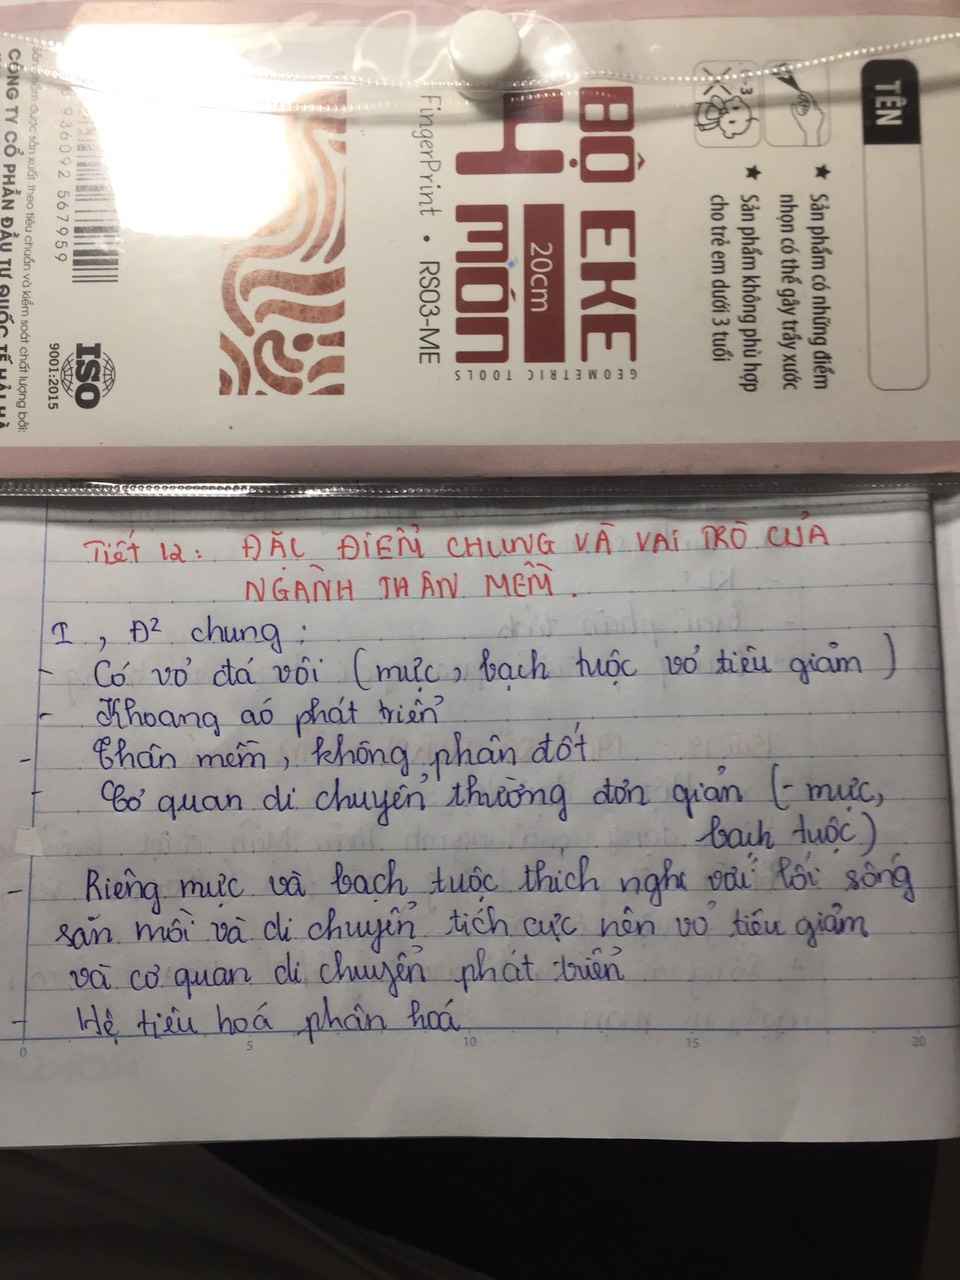 TÊN
★ Sản phẩm có những điểm
nhọn có thể gây trầy xước
★ Sản phẩm không phù hợp
cho trẻ em dưới 3 tuổi
0-3
BỘ EKE
4 MÓN
20cm
GEOMETRIC TOOLS
FingerPrint • RS03-ME
ISO
9001:2015
936092 567959
Sản phẩm được sản xuất theo tiêu chuẩn và kiểm soát chất lượng bởi:
CÔNG TY CỔ PHẦN ĐẦU TƯ QUỐC TẾ HẢI HÀ
Tiết 12: ĐẶC ĐIỂM CHUNG VÀ VAI TRÒ CỦA
NGÀNH THÂN MỀM.
I, Đ² chung:
- Có vỏ đá vôi (mực, bạch tuộc vỏ tiêu giảm)
- Khoang áo phát triển
- Thân mềm, không phân đốt
- Cơ quan di chuyển thường đơn giản (- mực,
bạch tuộc)
- Riêng mực và bạch tuộc thích nghi với lối sống
săn mồi và di chuyển tích cực nên vỏ tiêu giảm
và cơ quan di chuyển phát triển
- Hệ tiêu hoá phân hoá
0 5 10 15 20